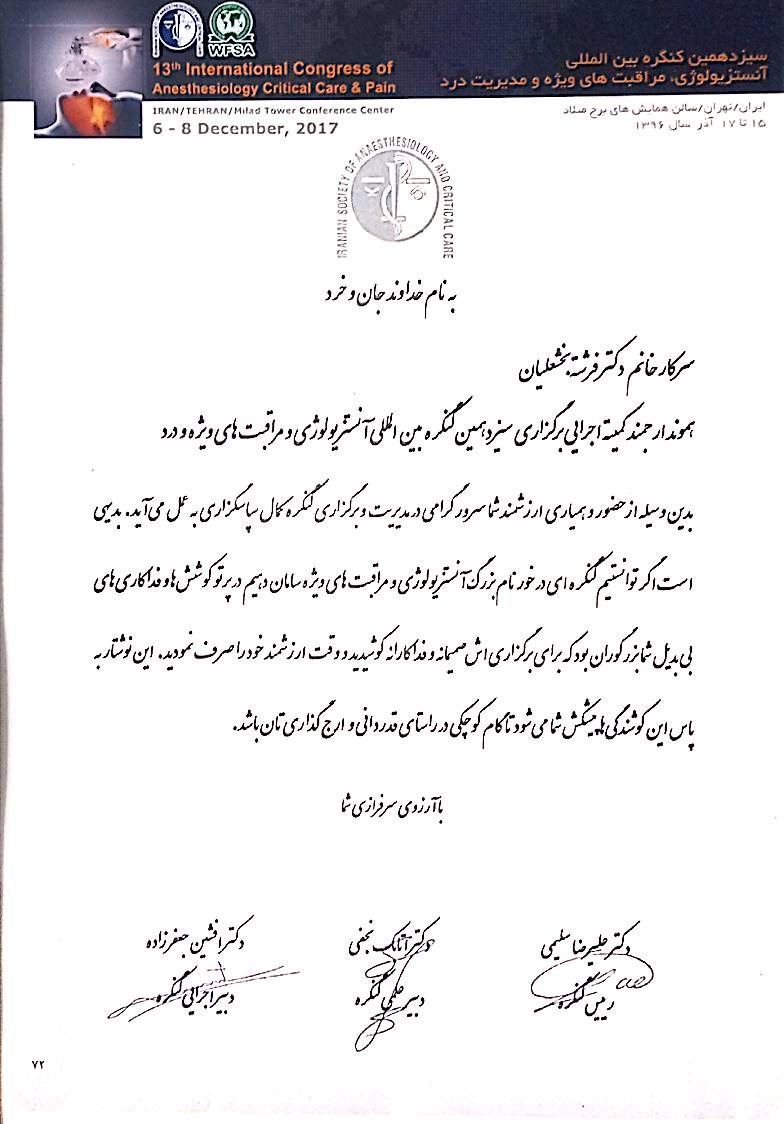 WFSA
13th International Congress of
Anesthesiology Critical Care & Pain
سیزدهمین کنگره بین المللی
آنستزیولوژی، مراقبت های ویژه و مدیریت درد
IRAN/TEHRAN/Milad Tower Conference Center
6 - 8 December, 2017
ایران/تهران/سالن همایش های برج میلاد
۱۵ تا ۱۷ آذر سال ۱۳۹۶
IRANIAN SOCIETY OF ANAESTHESIOLOGY AND CRITICAL CARE
به نام خداوند جان و خرد
سرکار خانم دکتر فرشته بخشعلیان
هموند ارجمند کمیته اجرایی برگزاری سیزدهمین کنگره بین المللی آنستزیولوژی و مراقبت های ویژه و درد
بدین وسیله از حضور و همیاری ارزشمند شما سرور گرامی در مدیریت و برگزاری کنگره کمال سپاسگزاری به عمل می آید. بدیهی
است اگر توانستیم کنگره ای در خور نام بزرگ آنستزیولوژی و مراقبت های ویژه سامان دهیم در پرتو کوشش ها و فداکاری های
بی بدیل شما بزرگوران بود که برای برگزاری اش صمیمانه و فداکارانه کوشیدید و وقت ارزشمند خود را صرف نمودید. این نوشتار به
پاس این کوشندگی ها پیشکش شما می شود تا گام کوچکی در راستای قدردانی و ارج گذاری تان باشد.
با آرزوی سرفرازی شما
دکتر علیرضا سلیمی
رییس کنگره
دکتر آتابک نجفی
دبیر علمی کنگره
دکتر افشین جعفرزاده
دبیر اجرایی کنگره
۷۲